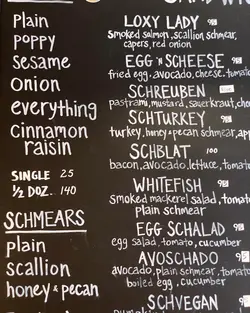 Plain
poppy
Sesame
Onion
everything
Cinnamon
raisin
SINGLE 25
½ DOZ. 140
SCHMEARS
plain
scallion
honey & pecan
LOXY LADY
Smoked salmon, scallion schmear,
capers, red onion
EGG 'N SCHEESE
fried egg, avocado, cheese, tomato
SCHREUBEN
pastrami, mustard, sauerkraut, che
SCHTURKEY
turkey, honey & pecan schmear, ap
SCHBLAT 100
bacon, avocado, lettuce, tomato
WHITEFISH
smoked mackerel salad, tomato,
plain schmear
EGG SCHALAD
egg salad, tomato, cucumber
AVOSCHADO
avocado, plain schmear, tomato
boiled egg, cucumber
SCHVEGAN